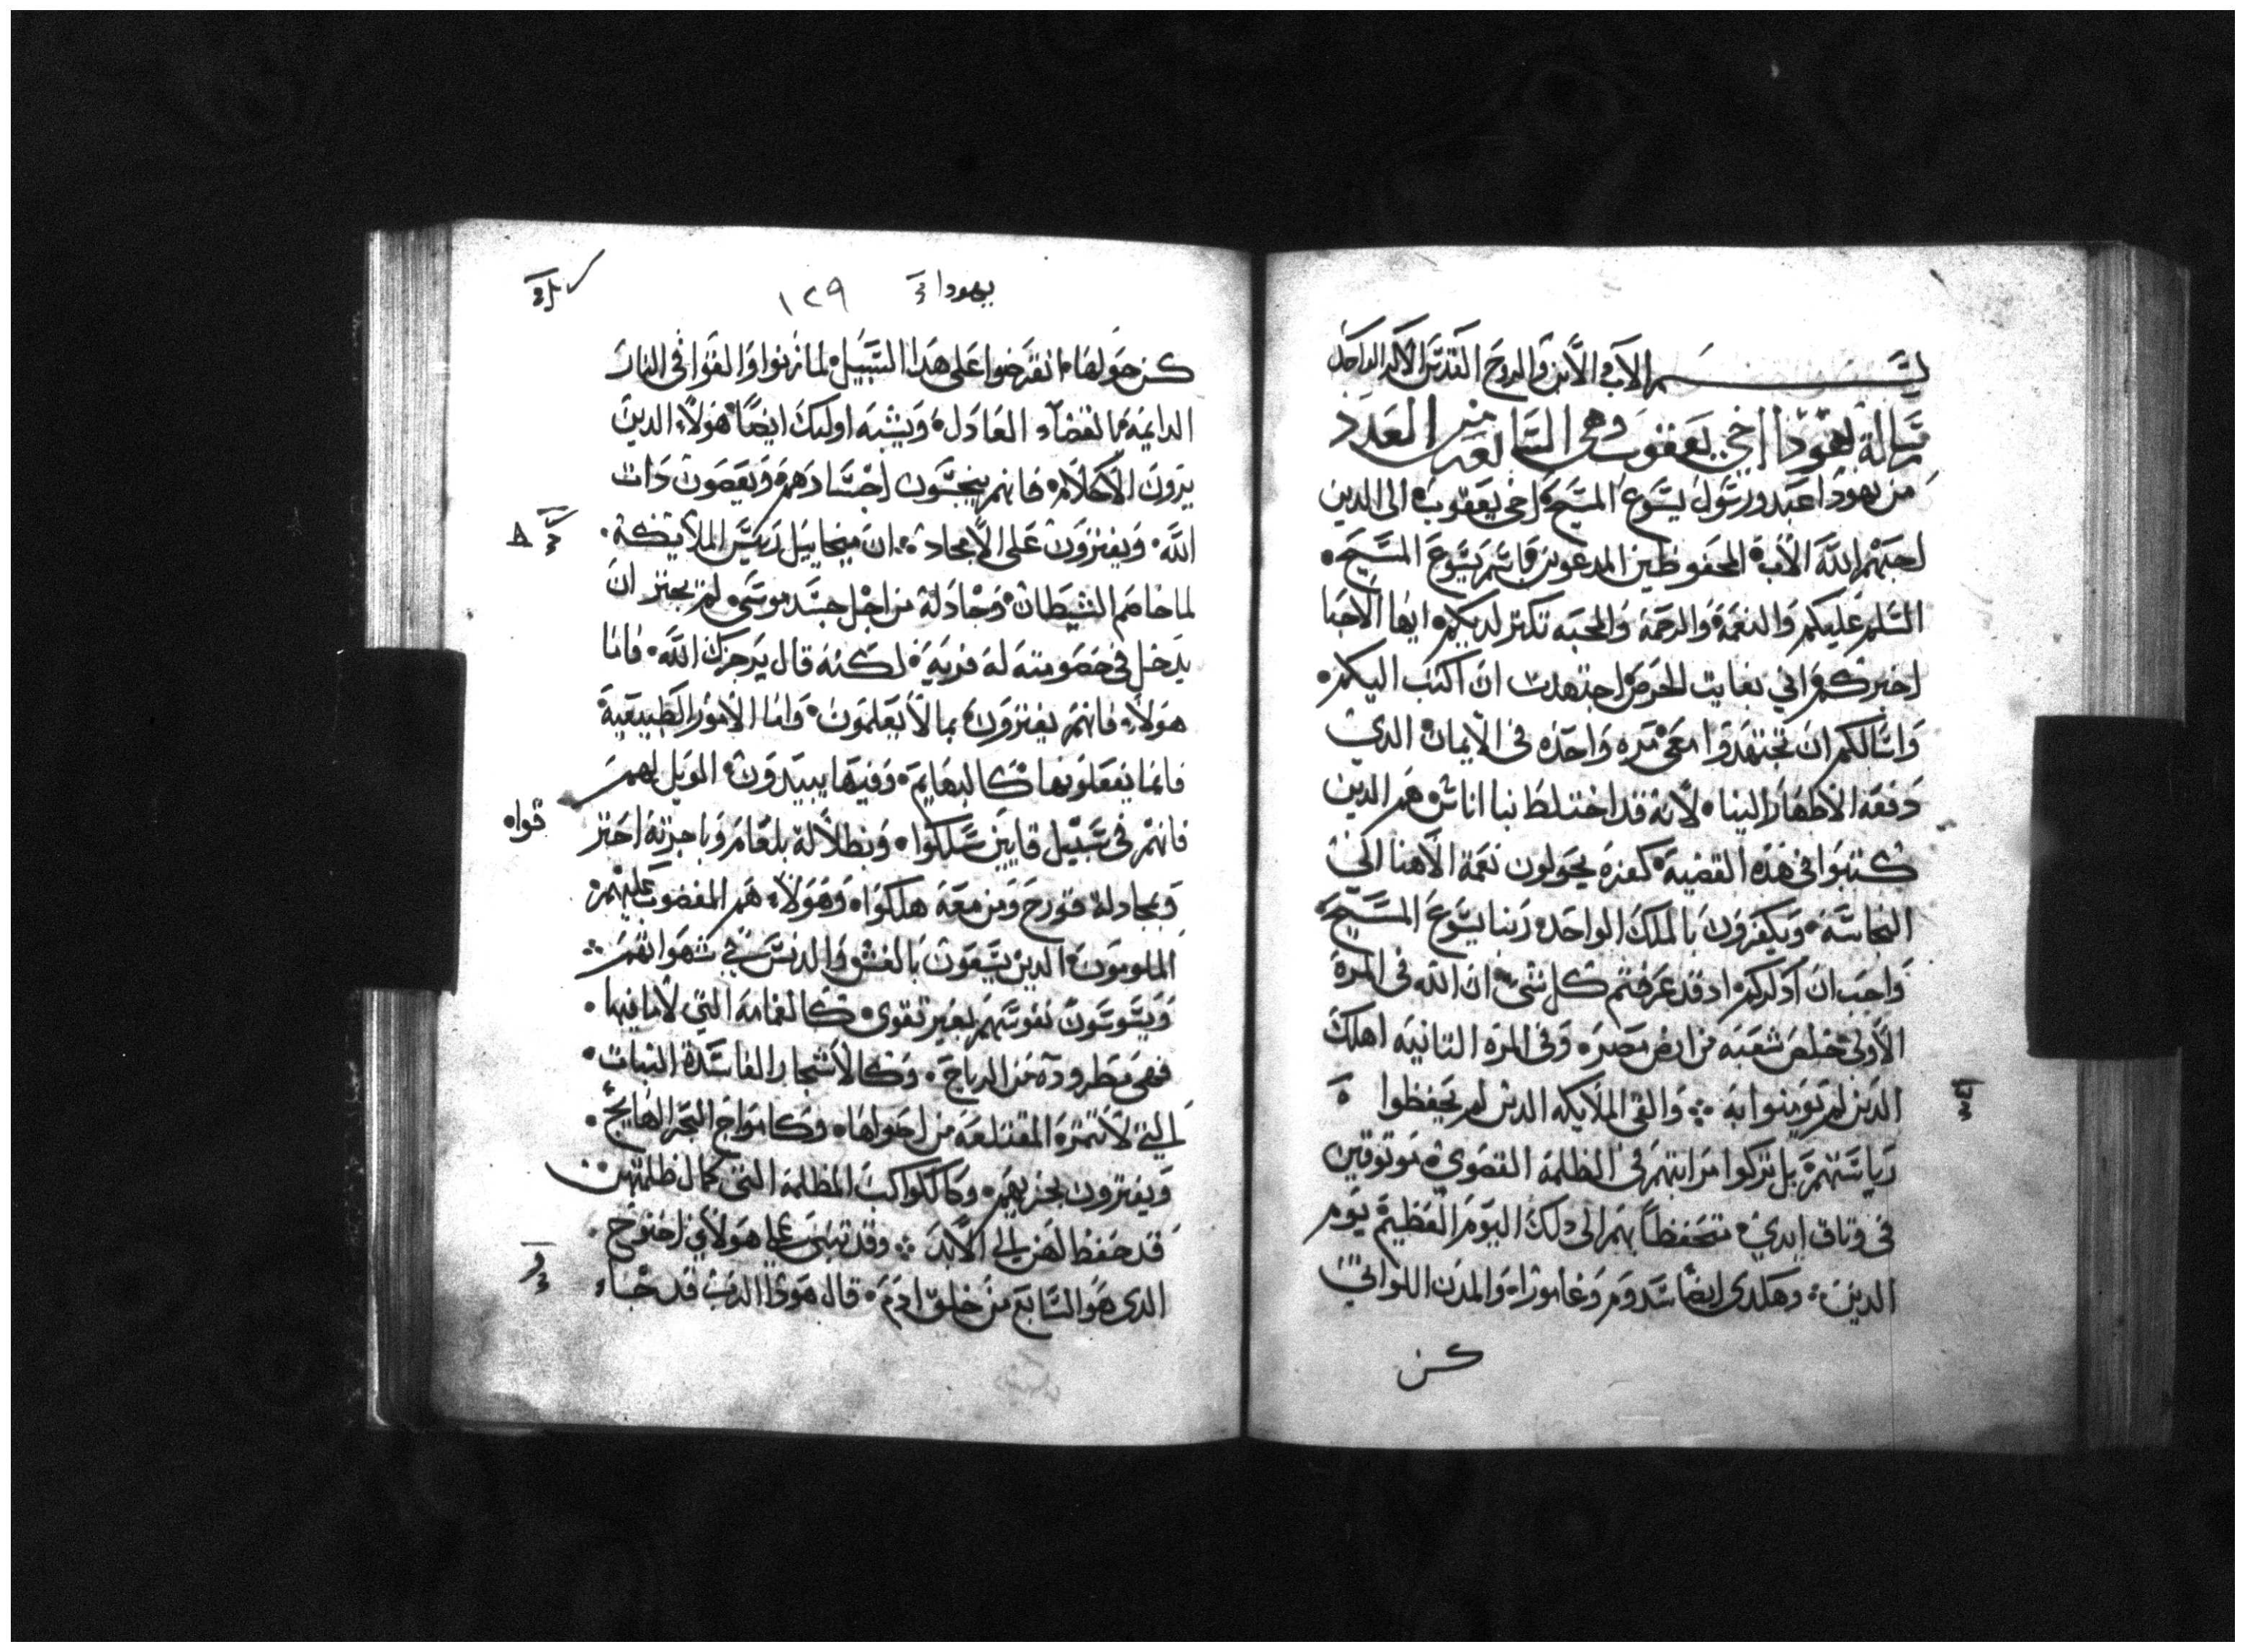 بسم الاب والابن والروح القدس الاله الواحد
رسالة يهودا اخي يعقوب وهي السابعه من العدد
من يهودا عبد ورسول يسوع المسيح اخي يعقوب الى الدين
احبهم الله الاب المحفوظين المدعوين باسم يسوع المسيح
السلم عليكم والنعمة والرحمة والمحبه تكتر لديكم ايها الاحبا
اخبركم اني بغايت الحرص اجتهدت ان اكتب اليكم
واسالكم ان تجتهدوا معي مره واحده في الايمان الدي
دفعه الاطهار الينا لانه قد اختلط بنا اناس هم الدين
كتبوا في هده القضية كفره يحولون نعمة الاهنا الى
النجاسه ويكفرون بالملك الواحد ربنا يسوع المسيح
واجب ان ادكركم اد قد عرفتم كل شي ان الله في المرة
الاولى خلص شعبه من ارض مصر وفي المره التانيه اهلك
الدين لم يومنوا به والقى الملايكه الدين لم يحفظوا
رياستهم بل تركوا مراتبهم في الظلمة القصوي موتوقين
في وتاق ابدي متحفظا بهم الى دلك اليوم العظيم يوم
الدين وهكدي ايضا سدوم وغامورا والمدن اللواتي
كن
يهودا
١٢٩
كن حولها افترضوا على هدا السبيل لما زنوا والقوا في النار
الدايمة بالقضاء العادل ويشبه اوليك ايضا هولاء الدين
يرون الاحلام فانهم ينجسون اجسادهم ويعصون دات
الله ويفترون على الامجاد ان ميخاييل رييس الملاييكه
لما خاصم الشيطان وجادلة من اجل جسد موسي لم يجتر ان
يدخل في خصومته له فريه لكنه قال يزجرك الله فاما
هولاء فانهم يفترون بما لا يعلمون واما الامور الطبيعية
فانما يفعلونها كالبهايم وفيها يبيدون الويل لهم
فانهم في سبيل قايين سلكوا وبطلالة بلعام وباجرته احتر
قواه
وبمجادلة قورح ومن معه هلكوا وهولاء هم المغضوب عليهم
الملومون الدين يسعون بالغش والدنس في شهواتهم
ويسوسون نفوسهم بغير تقوى كالغمامة التي لا ما فيها
فهى مطروده من الرياح وكالاشجار الفاسدة النبات
التي لا تتمره المقتلعه من اصولها وكامواج البحر الهايج
ويفترون بخزيهم وكالكواكب المظلمة التي كمال ظلمتهن
قد حفظ لهن الي الابد وقد تنبى على هولاي اخنوخ
الدي هو السابع من خلق ادم قال هودا الرب قد جاء